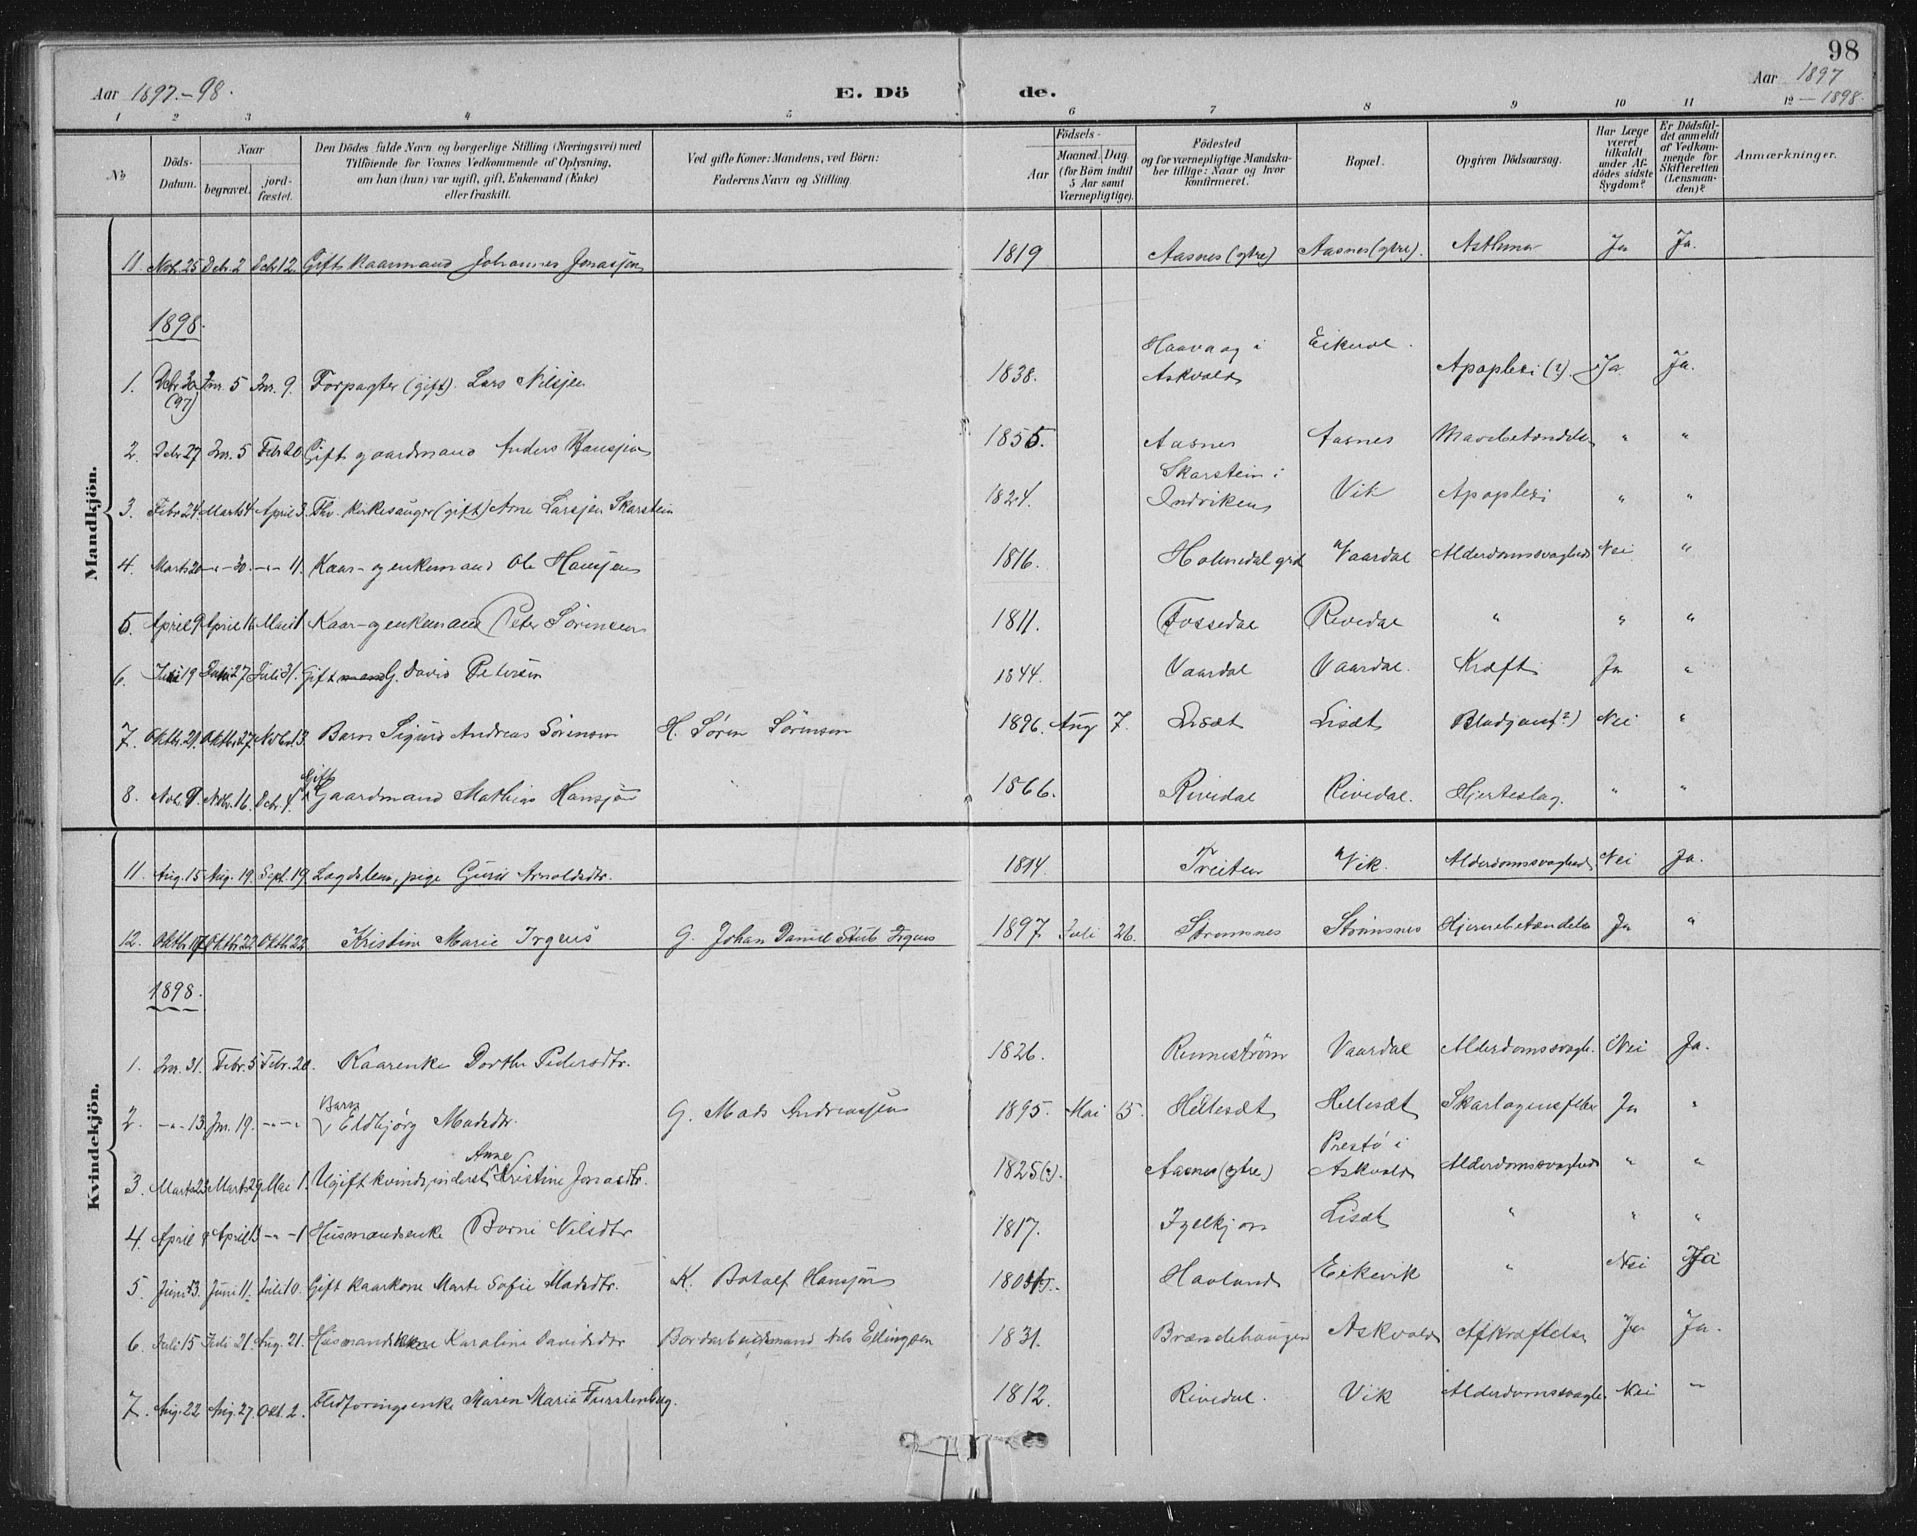 98
Aar 1897.-98.
E. Dö de.
Aar 1897
— 1898.
1 2 3 4 5 6 7 8 9 10 11 12
No
Döds-Datum.
Naar
begravet.
jordfæstet.
Den Dödes fulde Navn og borgerlige Stilling (Næringsvei) med
Tilföiende for Voxnes Vedkommende af Oplysning,
om han (hun) var ugift, gift, Enkemand (Enke)
eller fraskilt.
Ved gifte Koner: Mandens, ved Börn:
Faderens Navn og Stilling.
Födsels-
Aar
Maaned. Dag.
(for Börn indtil
5 Aar samt
Værnepligtige).
Födested
og for værnepligtige Mandskaber
tillige: Naar og hvor
konfirmeret.
Bopæl.
Opgiven Dödsaarsag.
Har Læge
været
tilkaldt
under Afdödes
sidste
Sygdom?
Er Dödsfaldet
anmeldt
af Vedkommende
for
Skifteretten
(Lensmanden)?
Anmærkninger.
Mandkjön.
11. Nov. 25 Decbr. 2 Decbr. 12. Gift Kaarmand Johannes Jonassen 1819 Aasnes (ytre) Aasnes (ytre). Asthma Ja Ja.
1898.
1. Decbr. 30 (97) Jnr. 5 Jnr. 9. Forpagter (gift). Lars Nilsjen 1838. Haavaag i Askvold Eikevol. Apoplexi (?). Ja Ja.
2. Decbr. 27 Jnr. 5 Febr. 20 Gift gaardmand Anders Hansjen 1855. Aasnes Aasnes Mavebetændelse " "
3. Febr. 24. Marts 4 April 3. Fhv. kirkesanger (gift) Arne Larsjen Skarstein 1824. Skarstein i Indviken Vik Apoplexi " "
4. Marts 20 -"- 30. -"- 11. Kaar- og enkemand Ole Hansjen 1816. Holmedal grd Vaardal Alderdomssvaghed Nei "
5. April 9 April 16 Mai 1 Kaar- og enkemand Peter Sørensen 1811. Fossedal Rivedal " " "
6. Juli 19 Juli 27 Juli 31. Gift G. David Petersen 1844. Vaardal Vaardal. Kræft Ja "
7. Oktbr. 21. Oktbr. 27. Novbr. 13. Barn Sigurd Andreas Sørensen H. Søren Sørensen 1896. Aug 7. Lisæt Lisæt (?) Nei "
8. Nov. 9. Novbr. 16. Decbr. 4. Gift Gaardmand Mathias Hansjøn 1866. Rivedal Rivedal. Hjerteslag. " "
Kvindekjön.
11. Aug. 15 Aug. 19. Sept. 19 Lægdslem, pige Guri Arnoldsdtr. 1814 Treiten Vik. Alderdomssvaghed Nei Ja.
12. Oktbr. 17 Oktbr. 22 Oktbr. 22. Kristine Marie Irgens G. Johan Daniel Stub Irgens 1897 Juli 26. Strømsnes Strømsnes Hjernebetændelse Ja "
1898.
1. Jnr. 31. Febr. 5 Febr. 20. Kaarenke Dorthe Pedersdtr. 1826. Rennestrøm Vaardal Alderdomssvagh. Nei Ja.
2. -"- 13. Jnr. 19. -"-"- Barn Eldbjørg Madsdtr. G. Mads Andreassen 1895. Mai 15. Hellesæt Hellesæt Skarlagensfeber Ja "
3. Marts 23 Marts 29 Mai 1. Ugift kvinde, inderst, Anne Kristine Jonasdtr. 1825 (?). Aasnes (ytre) Prestø i Askvold Alderdomssvaghed " "
4. April 9 April 13 -"- 1 Husmandsenke Borni Nilsdtr 1817. Igelkjon Lisæt " " "
5. Juni 3. Juni 11. Juli 10. Gift kaarkone Marte Sofie Madsdtr. K. Botolf Hansjøn Havland Eikevik " Nei Ja
6. Juli 15 Juli 21. Aug. 21. Husmandskone Karoline Davidsdtr Bordarbeidsmand Nils Ellingsen 1831. Brændehaugen Askvold Afkræftelse Ja Ja.
7. Aug. 22 Aug. 27. Okt. 2. Fledføringsenke Maren Maria Furstenberg. 1812. Rivedal. Vik Alderdomssvagh. Nei "